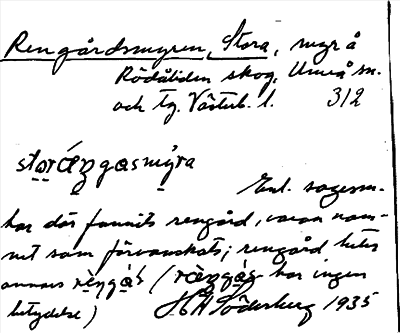 Rengårdsmyren, Stora, myr å
Rödåliden skog, Umeå sn.
och tg. Västerb. l. 312
storáŋgasmýra
Enl. sagesm.
har där funnits rengård, varav nam-
net som förvanskats; rengård heter
annars rèŋgàs (ràŋgàs har ingen
betydelse) HA Söderberg 1935